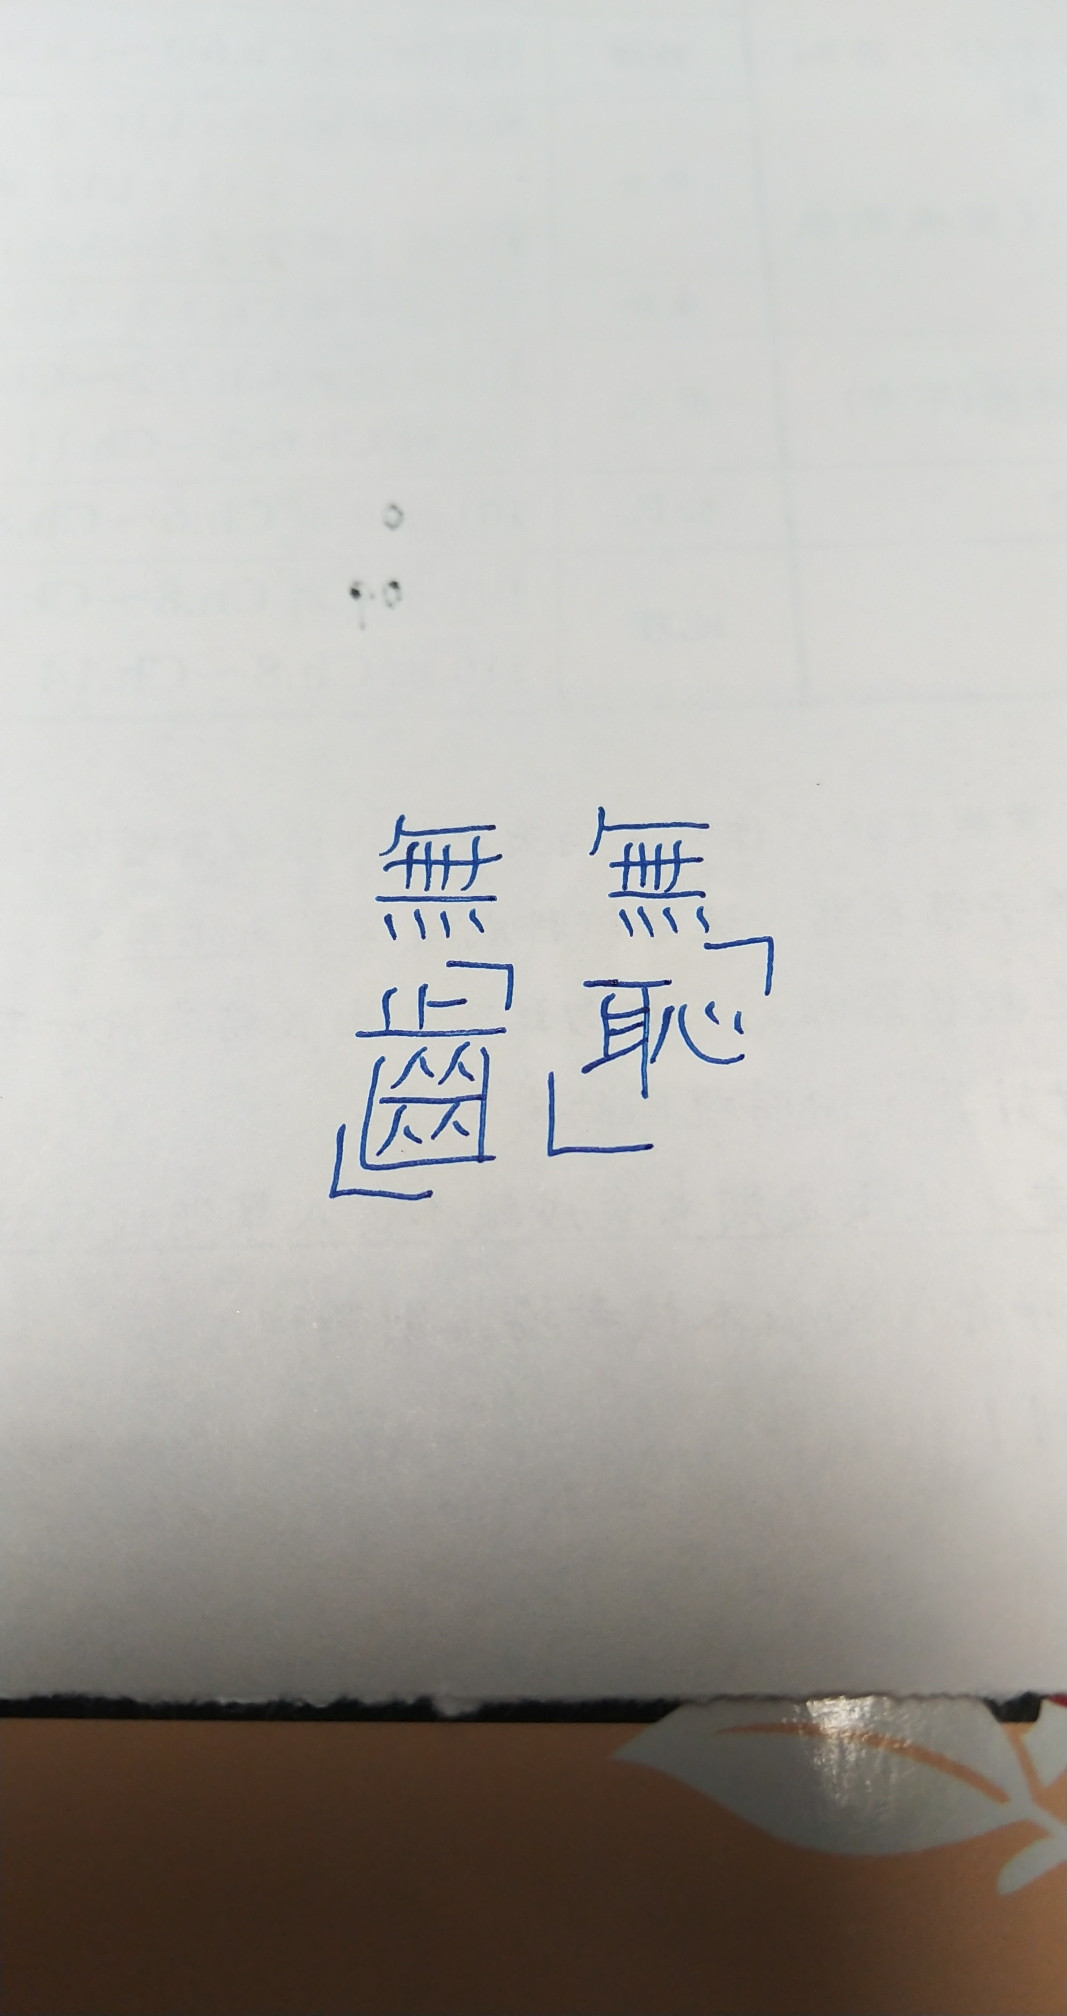 無﹁恥﹂
無﹁齒﹂